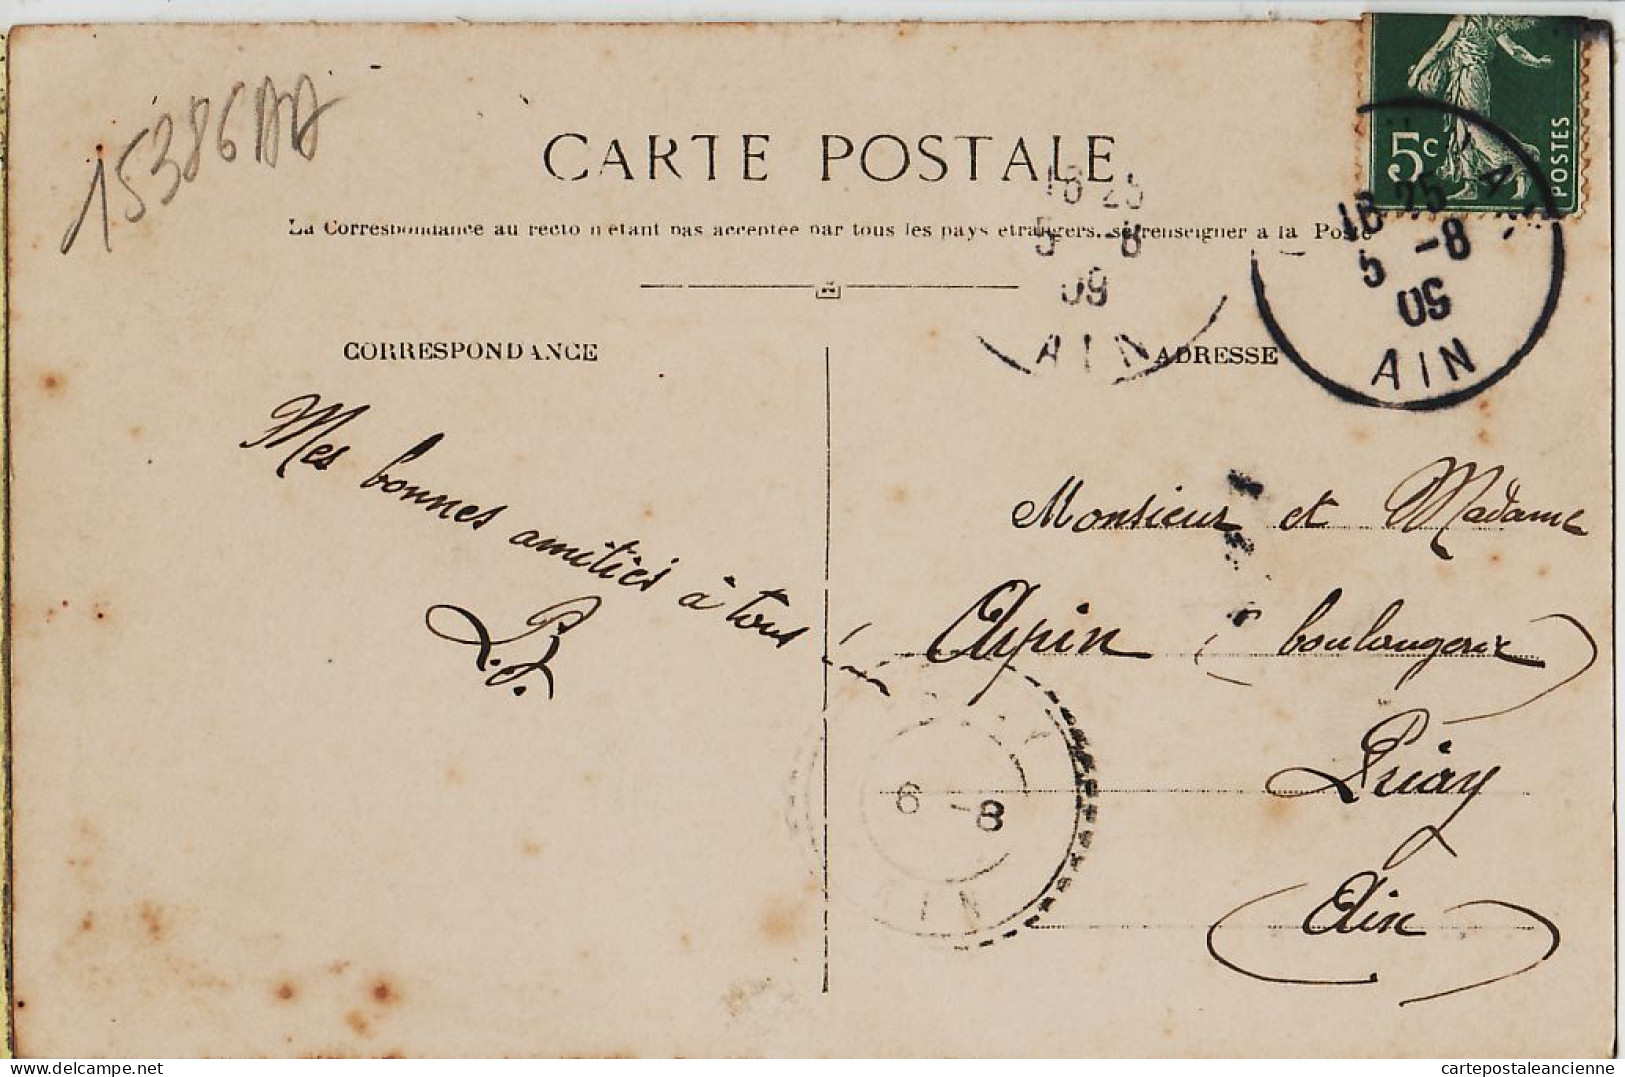 15386AA
CARTE POSTALE
La Correspondance au recto n'étant pas acceptée par tous les pays étrangers, se renseigner à la Poste
CORRESPONDANCE
ADRESSE
5c
POSTES
16 25
5 -8
09
AIN
16 25
5 -8
09
AIN
Mes bonnes amitiés à tous !
L. F.
Monsieur et Madame
Arpin (boulangerie)
Priay
(Ain)
6 -8
AIN
delcampe.net
cartepostaleancienne